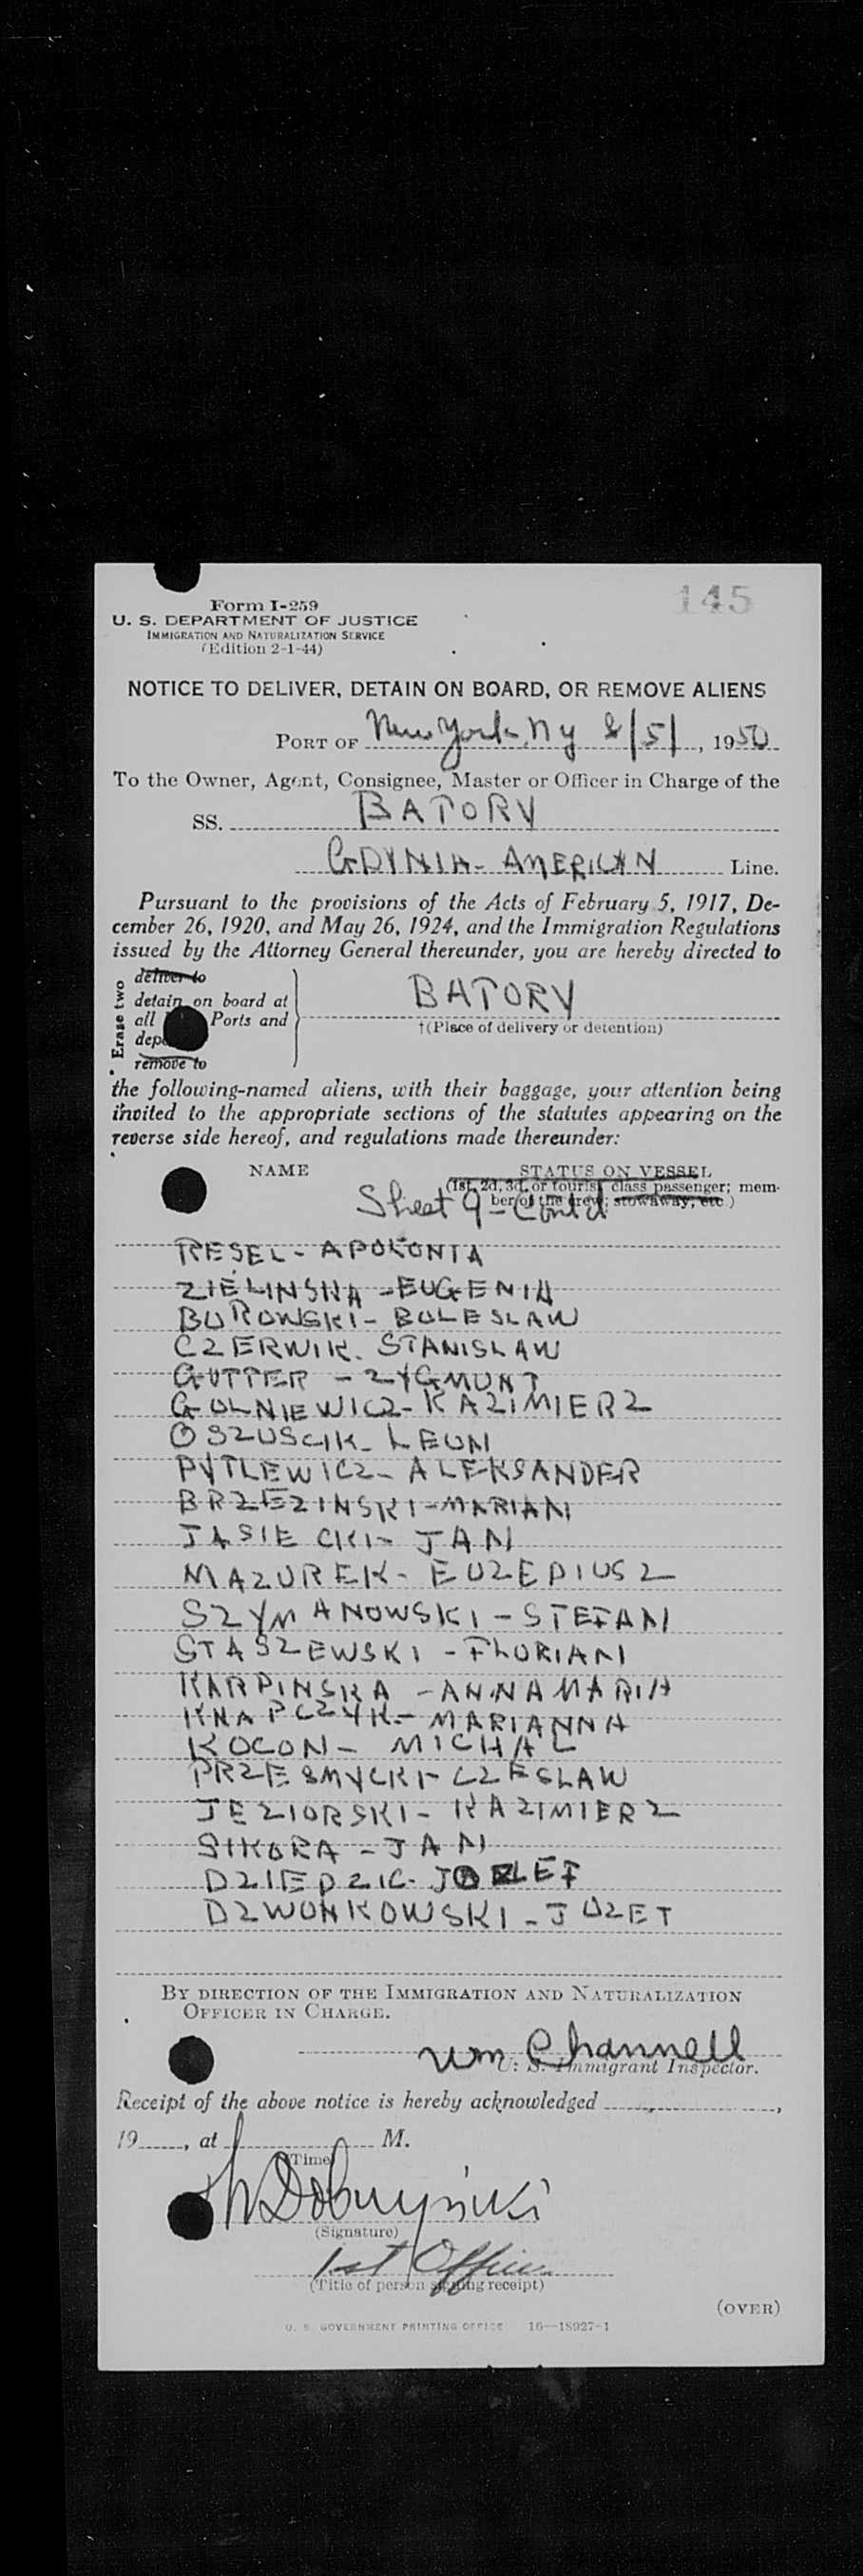 145
Form I-259
U. S. DEPARTMENT OF JUSTICE
IMMIGRATION AND NATURALIZATION SERVICE
(Edition 2-1-44)
NOTICE TO DELIVER, DETAIN ON BOARD, OR REMOVE ALIENS
PORT OF New York, Ny 8/5/, 1950
To the Owner, Agent, Consignee, Master or Officer in Charge of the
SS. BATORY
GDYNIA - AMERICAN Line.
Pursuant to the provisions of the Acts of February 5, 1917, De-
cember 26, 1920, and May 26, 1924, and the Immigration Regulations
issued by the Attorney General thereunder, you are hereby directed to
* Erase two
deliver to
detain on board at
all Ports and
remove to
BATORY
†(Place of delivery or detention)
the following-named aliens, with their baggage, your attention being
invited to the appropriate sections of the statutes appearing on the
reverse side hereof, and regulations made thereunder:
NAME STATUS ON VESSEL
(1st, 2d, 3d, or tourist class passenger; mem-
ber of the crew; stowaway, etc.)
Sheet 9 - Cont'd
RESEL - APOLONIA
ZIELINSKA - EUGENIA
BOROWSKI - BOLESLAW
CZERWIK. STANISLAW
GUTTER - ZYGMUNT
GOLNIEWICZ - KAZIMIERZ
OSZUSCIK - LEON
PYTLEWICZ - ALEKSANDER
BRZEZINSKI - MARIAN
JASIECKI - JAN
MAZUREK - EUZEBIUSZ
SZYMANOWSKI - STEFAN
STASZEWSKI - FLORIAN
KARPINSKA - ANNA MARIA
KNAPCZYK - MARIANNA
KOCON - MICHAL
PRZESMYCKI - CZESLAW
JEZIORSKI - KAZIMIERZ
SIKORA - JAN
DZIEDZIC - JOZEF
DZWONKOWSKI - JOZEF
BY DIRECTION OF THE IMMIGRATION AND NATURALIZATION
OFFICER IN CHARGE.
Wm Channell
U. S. Immigrant Inspector.
Receipt of the above notice is hereby acknowledged ,
19 , at M.
(Time)
(Signature)
1st Officer
(Title of person signing receipt)
(OVER)
U. S. GOVERNMENT PRINTING OFFICE 16—18927-1